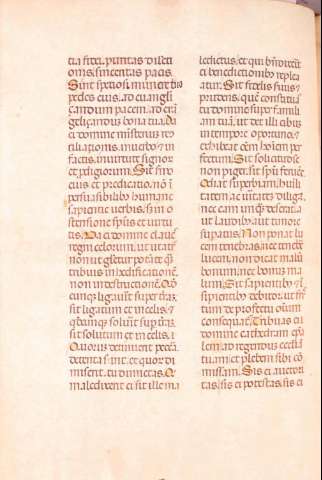 tia fidei. puritas dilecti
onis. sinceritas pacis.
Sint speciosi munere tuo
pedes eius. ad euangeli
zandum pacem. ad euan
gelizandum bona tua. Da
ei domine misterium reco
ciliationis. in uerbo et in
factis. in uirtute signor
et prodigiorum. Sit sermo
eius et predicatio. non i
persuasibilibus humane
sapientie uerbis. sed in o
stensione spũs et uirtu
tis. Da ei domine claues
regni celorum. ut utatur
non ut glorietur potestate quã
tribuis in edificationem
non in destructionem. Qđ
cumque ligauerit super terrã.
sit ligatum et in celis. et
quodcumque soluerit super terrã.
sit solutum et in celis.
Quorum detinuerit peccata
detenta sint. et quor di
miserit. tu dimittas. Q
maledixerit ei sit ille ma
ledictus. et qui bñdixerit
ei benedictionibus reple
atur. Sit fidelis seruus et
prudens. quẽ constituas
tu domine super famili
am tuã. ut det illis cibus
in tempore oportuno. et
exhibeat eum hominem per
fectum. Sit sollicitudine
non piger. sit spũ feruẽs.
Oderit superbiam. humili
tatem ac ueritatẽ diligat.
nec eam umquã deserat. a
ut laudibus aut timore
superatus. Non ponat lu
cem tenebras. nec tenebras
lucem. non dicat malũ
bonum. nec bonum ma
lum. Sit sapientibus et in
sipientibus debitor. ut fruc
tum de profectu omniũ
consequatur. Tribuas ei
domine cathedram epa
lem. ad regendum ecclesiã
tuam. et plebem sibi cõ
missam. Sis ei auctori
tas. sis ei potestas. sis ei